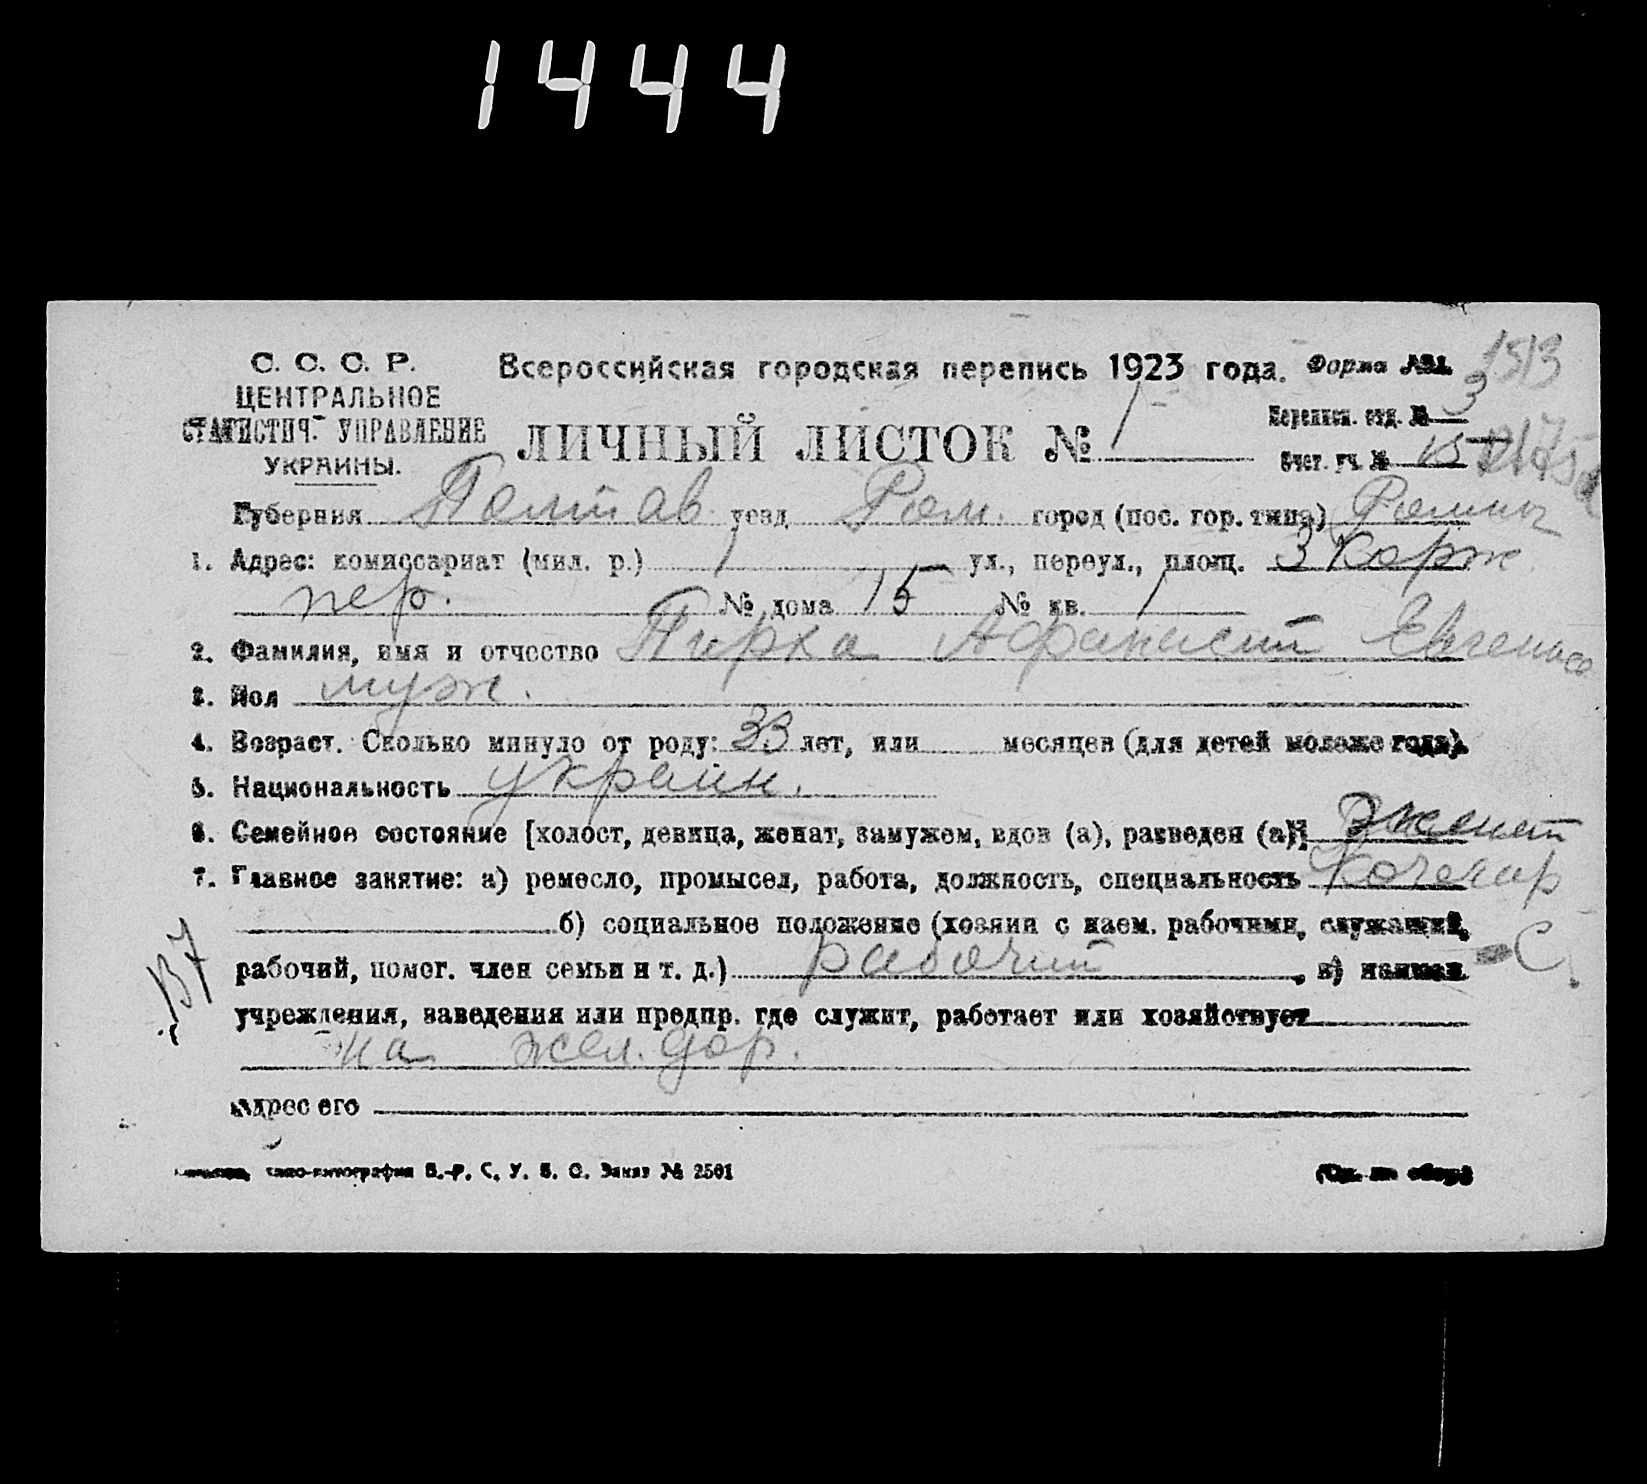 1444
С. С. С. Р.
ЦЕНТРАЛЬНОЕ
СТАТИСТИЧ. УПРАВЛЕНИЕ
УКРАИНЫ.
Всероссийская городская перепись 1923 года. Форма №1.
1513
ЛИЧНЫЙ ЛИСТОК № 1
Переписн. отд. № 3
Счет. уч. № 15
Губерния Полтав уезд Ром. город (пос. гор. типа) Ромны
1. Адрес: комиссариат (мил. р.) 1 ул., переул., площ. 3 Корж
пер. № дома 15 № кв. 1
2. Фамилия, имя и отчество Пирха Афанасий Евгеньев
3. Пол муж.
4. Возраст. Сколько минуло от роду: 33 лет, или месяцев (для детей моложе года).
5. Национальность украин.
6. Семейное состояние [холост, девица, женат, замужем, вдов (а), разведен (а)] женат
7. Главное занятие: а) ремесло, промысел, работа, должность, специальность Кочегар
б) социальное положение (хозяин с наем. рабочими, служащий,
рабочий, помог. член семьи и т. д.) рабочий, в) наимен.
С.
В7
учреждения, заведения или предпр. где служит, работает или хозяйствует
на жел. дор.
Адрес его
типо-литография В.-Р. С. У. В. О. Заказ № 2501
(См. на обор.)